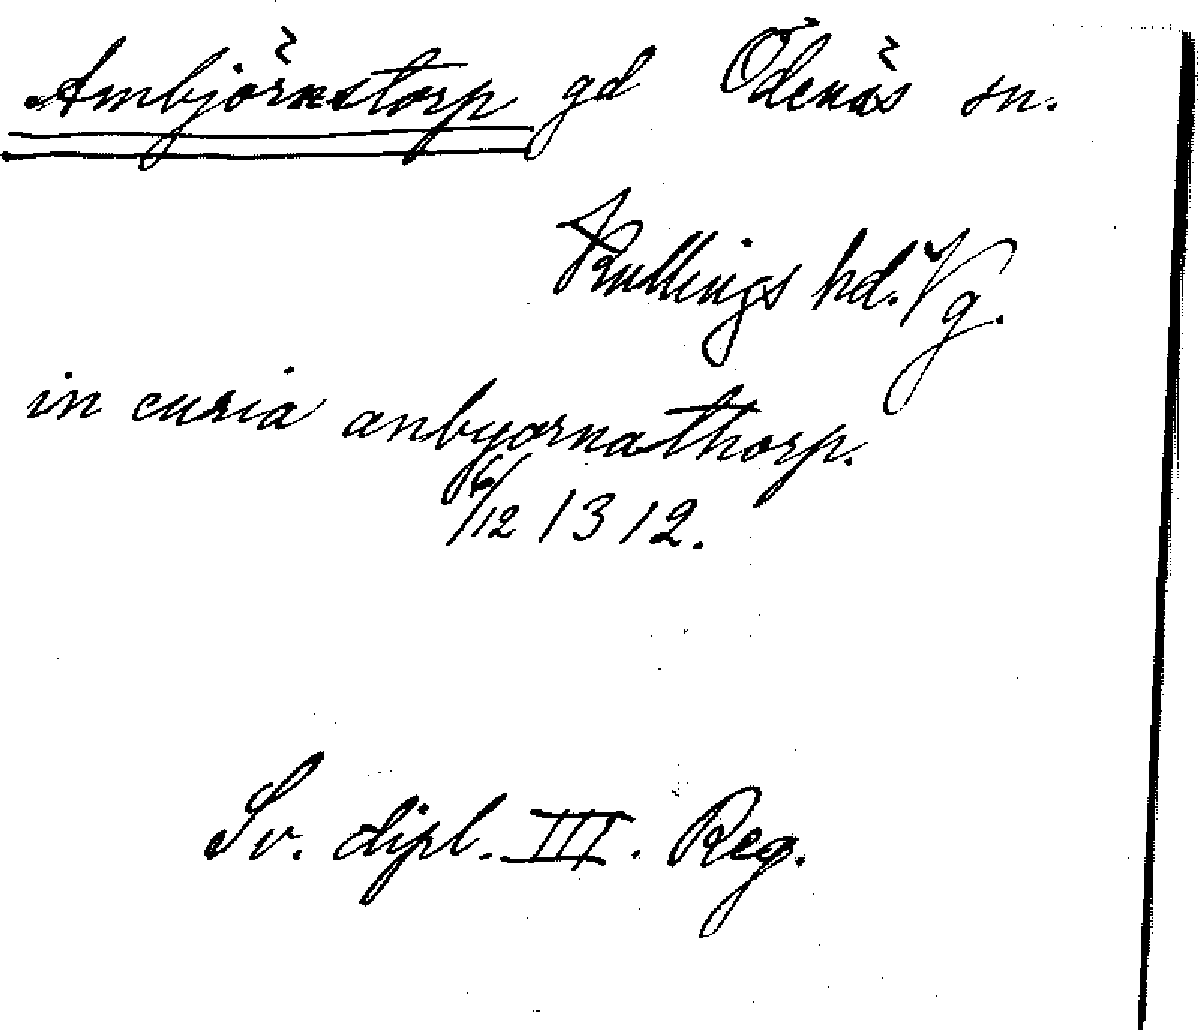 Ambjörnstorp gd Ödenäs sn.
Kullings hd. Vg.
in curia anbyornathorp.
6/12 1312.
Sv. dipl. III. Reg.